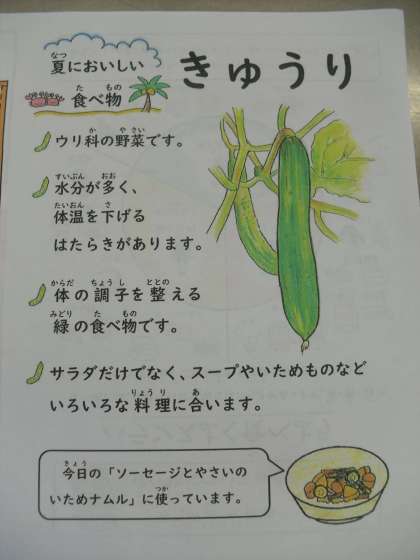 夏においしい
食べ物
きゅうり
ウリ科の野菜です。
水分が多く、
体温を下げる
はたらきがあります。
体の調子を整える
緑の食べ物です。
サラダだけでなく、スープやいためものなど
いろいろな料理に合います。
今日の「ソーセージとやさいの
いためナムル」に使っています。